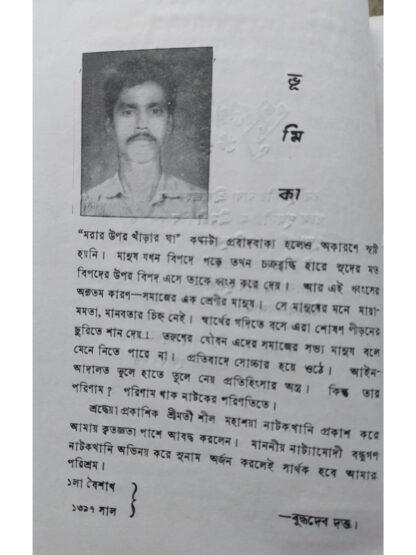 ভূ
মি
কা
“মরার উপর খাঁড়ার ঘা” কথাটা প্রবাদবাক্য হলেও অকারণে সৃষ্ট
হয়নি। মানুষ যখন বিপদে পড়ে তখন চক্রবৃদ্ধি হারে সুদের মত
বিপদের উপর বিপদ এসে তাকে ধ্বংস করে দেয়। আর এই ধ্বংসের
অন্যতম কারণ—সমাজের এক শ্রেণীর মানুষ। সে মানুষের মনে মায়া-
মমতা, মানবতার চিহ্ন নেই। স্বার্থের গদিতে বসে এরা শোষণ পীড়নের
ছুরিতে শান দেয়। তরুণের যৌবন এদের সমাজের সভ্য মানুষ বলে
মেনে নিতে পারে না। প্রতিবাদে সোচ্চার হয়ে ওঠে। আইন-
আদালত ভুলে হাতে তুলে নেয় প্রতিহিংসার অস্ত্র। কিন্তু তার
পরিণাম? পরিণাম থাক নাটকের পরিণতিতে।
শ্রদ্ধেয়া প্রকাশিক শ্রীমতী শীল মহাশয়া নাটকখানি প্রকাশ করে
আমায় কৃতজ্ঞতা পাশে আবদ্ধ করলেন। মাননীয় নাট্যামোদী বন্ধুগণ
নাটকখানি অভিনয় করে সুনাম অর্জন করলেই সার্থক হবে আমার
পরিশ্রম।
১লা বৈশাখ
১৩৯৭ সাল
—বুদ্ধদেব দত্ত।